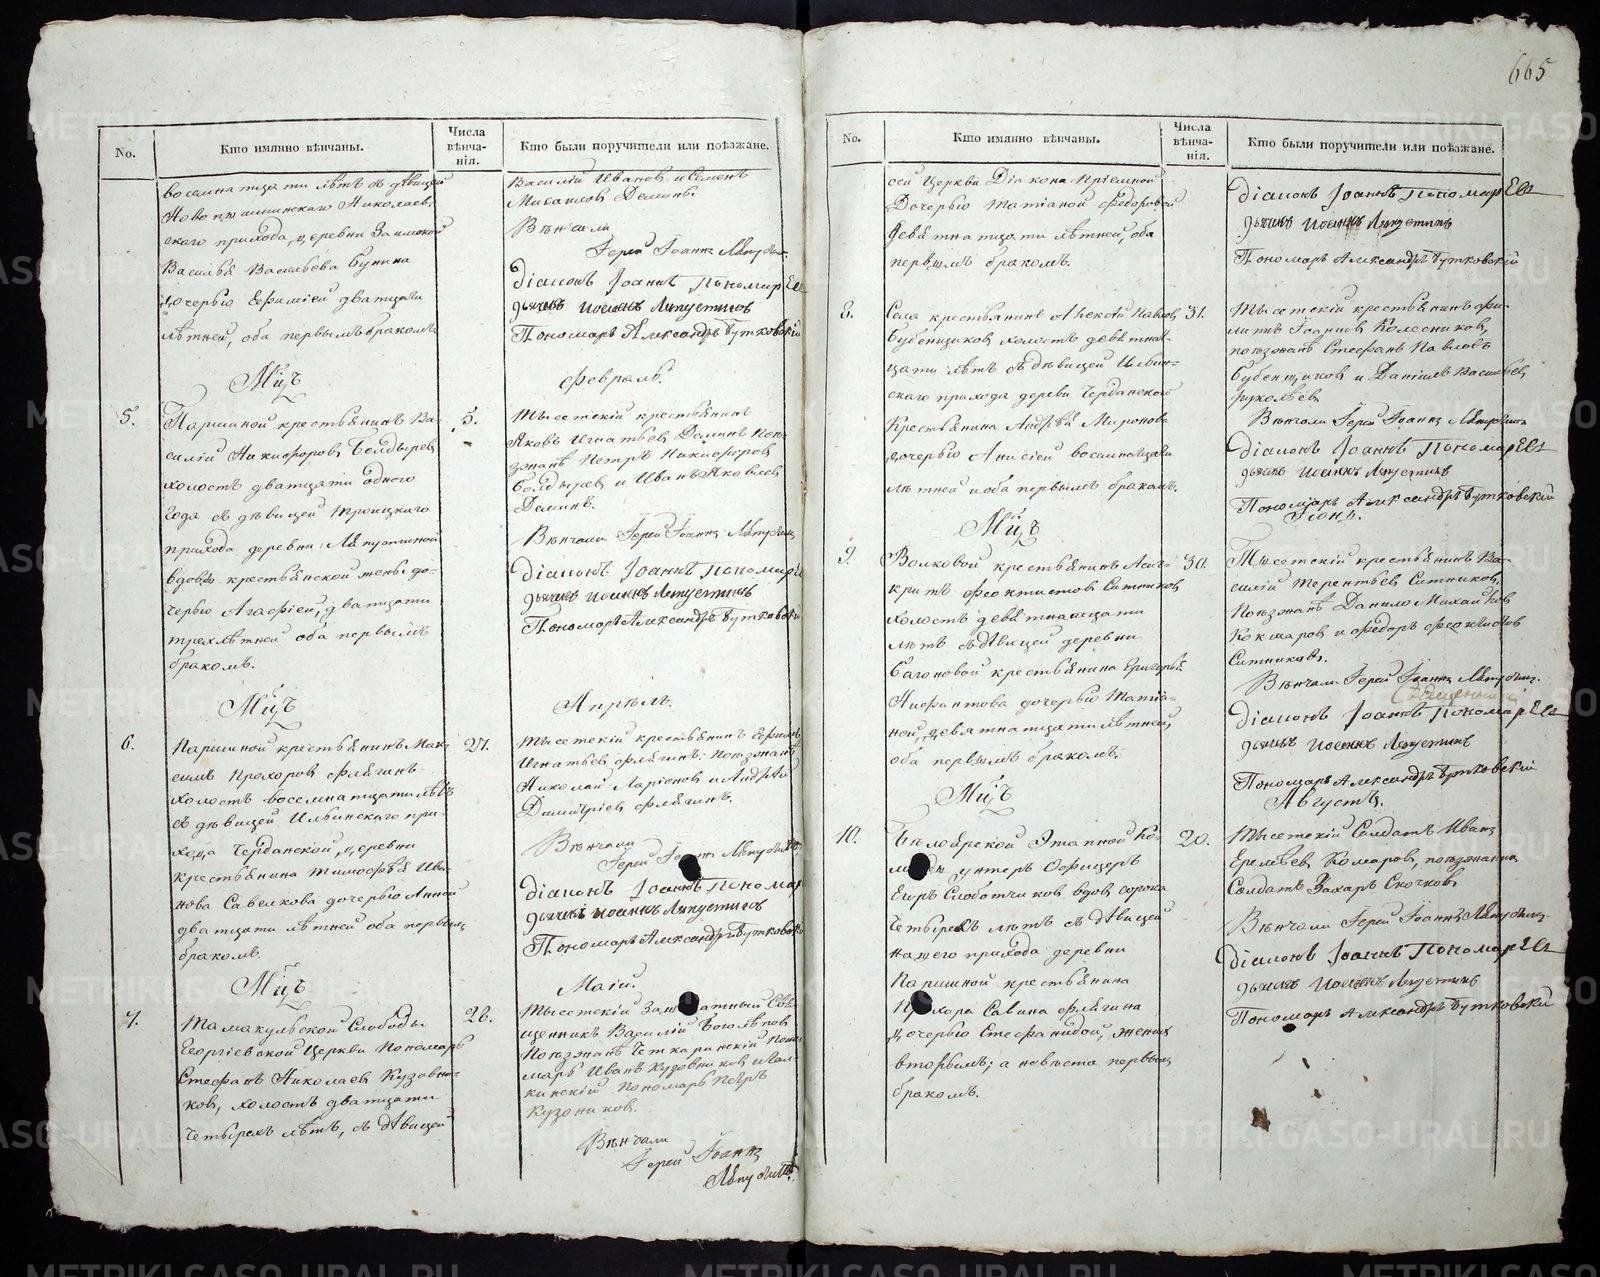 665
No.
Кто имянно вѣнчаны.
Числа
вѣнча-
нія.
Кто были поручители или поѣзжане.
восемнатцати лѣтъ съ дѣвицей
Новопышминскаго Николаев-
скаго прихода, деревни Заимской
Василья Васильева Бунина
дочерью Ефимией дватцати
лѣтней, оба первымъ бракомъ.
Василій Ивановъ и Семенъ
Михаиловъ Деминъ.
Вѣнчали
Іерей Іоаннъ
Діаконъ Іоаннъ Пономарев
Дьячекъ Иоаннъ Ляпустинъ
Пономарь Александръ Бутковскій
Мцъ
Февраль.
5.
Паршиной крестьянинъ Ва-
силій Никифоровъ Болдырев
холостъ дватцати одного
года съ дѣвицей Троицкаго
прихода деревни Ляпустиной
вдовы крестьянской жены до-
черью Агафіей, дватцати
трехлѣтней оба первымъ
бракомъ.
5.
Тысетскій крестьянинъ
Яковъ Игнатьев Деминъ Поѣ-
зжанѣ Петръ Никифоров
Болдырев и Иванъ Яковлев
Деминъ.
Вѣнчали Іерей Іоаннъ
Діаконъ Іоаннъ Пономарев
Дьячекъ Иоаннъ Ляпустинъ
Пономарь Александръ Бутковскій
Мцъ
Апрѣль.
6.
Паршиной крестьянинъ Мак-
симъ Прохоров Флягинъ
холостъ восемнатцати лѣтъ
съ дѣвицей Ильинскаго при-
хода Чердынской, деревни
крестьянина Тимофѣя Ива-
нова Савелкова дочерью Анной
дватцати лѣтней оба первымъ
бракомъ.
27.
Тысетскій крестьянинъ Ефимъ
Игнатьев Флягинъ. Поѣзжанѣ
Николай Ларіонов и Андрѣй
Димитріев Флягинъ.
Вѣнчали
Іерей Іоаннъ
Діаконъ Іоаннъ Пономарев
Дьячекъ Иоаннъ Ляпустинъ
Пономарь Александръ Бутковскій
Мцъ
Маій.
7.
Тамакульской Слободы
Георгіевской Церкви Пономарь
Стефанъ Николаев Кузовни-
ков, холостъ дватцати
четырехъ лѣтъ, съ дѣвицей
26.
Тысетскій Заштатный Свя-
щенникъ Василій Боголѣпов
Поѣзжанѣ Четкаринскій Поно-
марь Иванъ Кузовников и
кинскій Пономарь Петръ
Кузоников.
Вѣнчали
Іерей Іоаннъ
No.
Кто имянно вѣнчаны.
Числа
вѣнча-
нія.
Кто были поручители или поѣзжане.
сей Церкви Діакона Пріемной
Дочерью Татіаной Федоровой
девятнатцати лѣтней, оба
первымъ бракомъ.
Діаконъ Іоаннъ Пономарев
Дьячекъ Иоаннъ Ляпустинъ
Пономарь Александръ Бутковскій
8.
Села крестьянинъ Алексѣй Павлов
Бубенщиков холостъ девятнат-
цати лѣтъ съ дѣвицей Ильин-
скаго прихода деревни Чердынской
Крестьянина Андрѣя Миронова
дочерью Анисіей восемнатцати
лѣтней и оба первымъ бракомъ.
31.
Тысетскій крестьянинъ Фи-
липъ Іоаннов Колесников,
поѣзжанѣ Стефанъ Павловъ
Бубенщиков и Даніилъ Васильев
Вѣнчали Іерей Іоаннъ
Діаконъ Іоаннъ Пономарев
Дьячекъ Иоаннъ Ляпустинъ
Пономарь Александръ Бутковскій
Мцъ
Іюнь.
9.
Волковой крестьянинъ Асин-
критъ Феоктистов Ситников
холостъ девятнатцати
лѣтъ съ дѣвицей деревни
Багоновой крестьянина Григорья
дочерью Татіа-
ной, девятнатцатилѣтней,
оба первымъ бракомъ.
30.
Тысетскій крестьянинъ Ва-
силій Терентьев Ситников,
Поѣзжанѣ Данило Михайлов
Кокшаров и Федоръ Феоктистов
Ситников.
Вѣнчали Іерей Іоаннъ
Діаконъ Іоаннъ Пономарев
Дьячекъ Иоаннъ Ляпустинъ
Пономарь Александръ Бутковскій
Мцъ
Августъ.
10.
Бѣлоярской Этапной Ко-
манды унтеръ Офицеръ
Егоръ Слободчиков вдов сорока
четырехъ лѣтъ съ дѣвицей
нашего прихода деревни
Паршиной крестьянина
Прохора Савина Флягина
дочерью Стефанидой, жених
вторымъ; а невѣста первымъ
бракомъ.
20.
Тысетскій Солдатъ Иванъ
Еремѣев Комаров, поѣзжанинъ
Солдатъ Захаръ Скочков
Вѣнчали Іерей Іоаннъ
Діаконъ Іоаннъ Пономарев
Дьячекъ Иоаннъ Ляпустинъ
Пономарь Александръ Бутковскій
METRIKI.GASO-URAL.RU